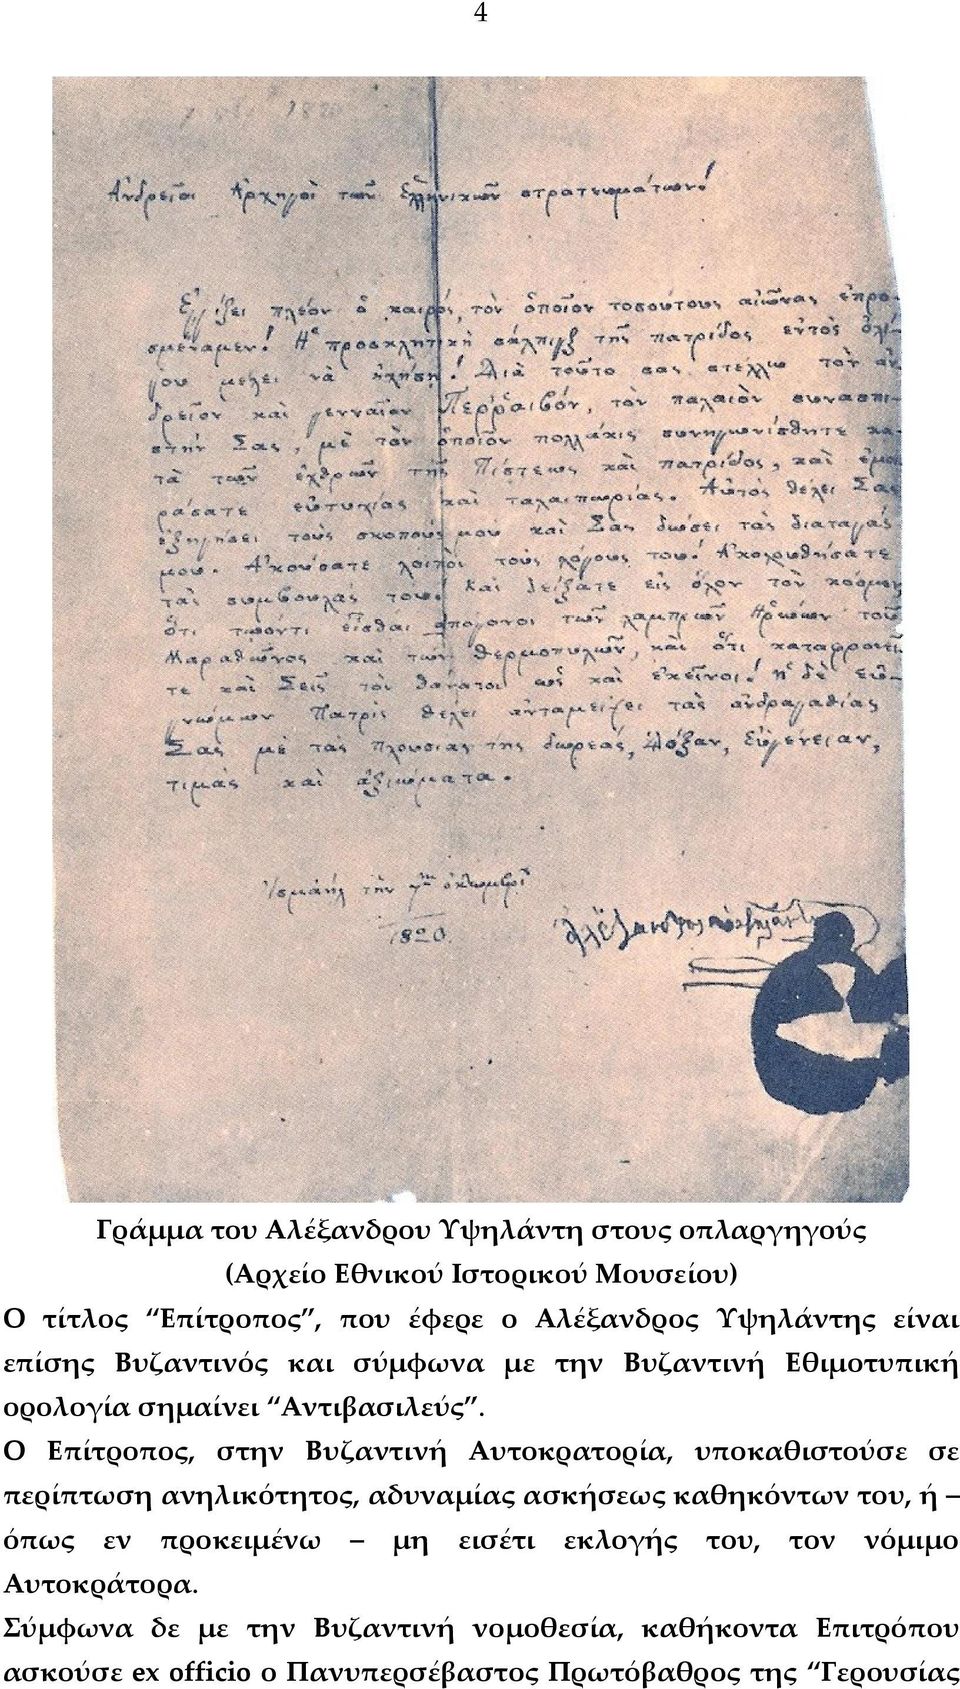 4
7 1820
Ἀνδρεῖοι Ἀρχηγοὶ τῶν Ἑλληνικῶν στρατευμάτων!
Ἐγγίζει πλέον ὁ καιρός, τὸν ὁποῖον τοσούτους αἰῶνας ἐπρο-
σμέναμεν! Ἡ προσκλητικὴ σάλπιγξ τῆς πατρίδος ἐντὸς ὀλί-
γου μέλει νὰ ἠχήσῃ! Διὰ τοῦτο σας στέλλω τὸν ἀν
δρεῖον καὶ γενναῖον Περραιβόν, τὸν παλαιὸν συνασπι-
στήν Σας, μὲ τὸν ὁποῖον πολλάκις συνηγωνίσθητε κα-
τὰ τῶν ἐχθρῶν τῆς Πίστεως καὶ πατρίδος, καὶ ἐμοι
ράσατε εὐτυχίας καὶ ταλαιπωρίας. Αὐτὸς θέλει Σας
ἐξηγήσει τοὺς σκοπούς μου καὶ Σᾶς δώσει τὰς διαταγάς
μου. Ἀκούσατε λοιπὸν τοὺς λόγους του! Ἀκολουθήσατε
τὰς συμβουλάς του! Καὶ δείξατε εἰς ὅλον τὸν κόσμον
ὅτι τωόντι εἶσθαι ἀπόγονοι τῶν λαμπρῶν Ἡρώων τοῦ
Μαραθῶνος καὶ τῶν Θερμοπυλῶν, καὶ ὅτι καταφρονεῖ
τε καὶ Σεῖς τὸν θάνατον ὡς καὶ ἐκεῖνοι! ἡ δὲ εὐ-
γνώμων Πατρὶς θέλει ἀνταμείψει τὰς ἀνδραγαθίας
Σας μὲ τὰς πλουσίας της δωρεάς, Δόξαν, Εὐγένειαν,
τιμὰς καὶ ἀξιώματα.
Ἰσμάηλ τὴν 7ην ὀκτωμβρί
1820.
Ἀλέξανδρος Ὑψηλάντης
Γράμμα του Αλέξανδρου Υψηλάντη στους οπλαργηγούς
(Αρχείο Εθνικού Ιστορικού Μουσείου)
Ο τίτλος “Επίτροπος”, που έφερε ο Αλέξανδρος Υψηλάντης είναι
επίσης Βυζαντινός και σύμφωνα με την Βυζαντινή Εθιμοτυπική
ορολογία σημαίνει “Αντιβασιλεύς”.
Ο Επίτροπος, στην Βυζαντινή Αυτοκρατορία, υποκαθιστούσε σε
περίπτωση ανηλικότητος, αδυναμίας ασκήσεως καθηκόντων του, ή –
όπως εν προκειμένω – μη εισέτι εκλογής του, τον νόμιμο
Αυτοκράτορα.
Σύμφωνα δε με την Βυζαντινή νομοθεσία, καθήκοντα Επιτρόπου
ασκούσε ex officio ο Πανυπερσέβαστος Πρωτόβαθρος της “Γερουσίας